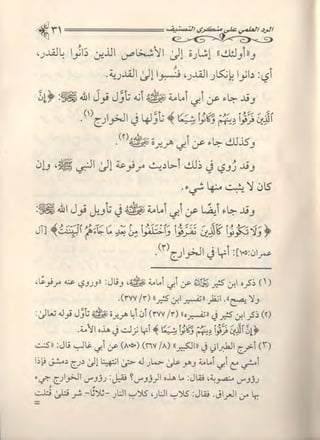 الرد العلمي على منكري التصنيف ٣١
و«أولئك» إشارة إلى الأشخاص الذين دانوا بالقدر،
أي: دانوا بإنكار القدر، فنُسبوا إلى القدرية.
وقد جاء عن أبي أمامة رضي الله عنه أنه تأول قول الله ﷻ: ﴿إِنَّ
الَّذِينَ فَرَّقُوا دِينَهُمْ وَكَانُوا شِيَعًا﴾ تأولها في الخوارج(١).
وكذلك جاء عن أبي هريرة رضي الله عنه(٢).
وقد رُوي في ذلك حديث مرفوعة إلى النبي ﷺ، وإن
كان لا يثبت منها شيء.
وقد جاء أيضًا عن أبي أمامة رضي الله عنه في تأويل قول الله ﷻ:
﴿وَلَا تَكُونُوا كَالَّذِينَ تَفَرَّقُوا وَاخْتَلَفُوا مِنْ بَعْدِ مَا جَاءَهُمُ الْبَيِّنَاتُ﴾ [آل
عمران: ١٠٥]: أنها في الخوارج(٣).
(١) ذكره ابن كثير رحمه الله عن أبي أمامة رضي الله عنه، وقال: «وروي عنه مرفوعًا،
ولا يصح». انظر «تفسير ابن كثير» (٣/ ٣٧٧)
(٢) ذكر ابن كثير في «تفسيره» (٣/ ٣٧٧) أن أبا هريرة رضي الله عنه تأول قوله تعالى:
﴿إِنَّ الَّذِينَ فَرَّقُوا دِينَهُمْ وَكَانُوا شِيَعًا﴾ أنها نزلت في هذه الأمة.
(٣) أخرج الطبراني في «الكبير» (٨/ ٢٦٧) (٨٠٥١) عن أبي غالب قال: «كنت
أمشي مع أبي أمامة وهو على حمار له حتى إذا انتهينا إلى درج دمشق فإذا
رؤوس منصوبة، فقال: ما هذه الرؤوس؟ فقيل: رؤوس الخوارج جيء
بها من العراق. فقال: كلاب النار، كلاب النار -ثلاثًا- شر قتلى قُتلت
=